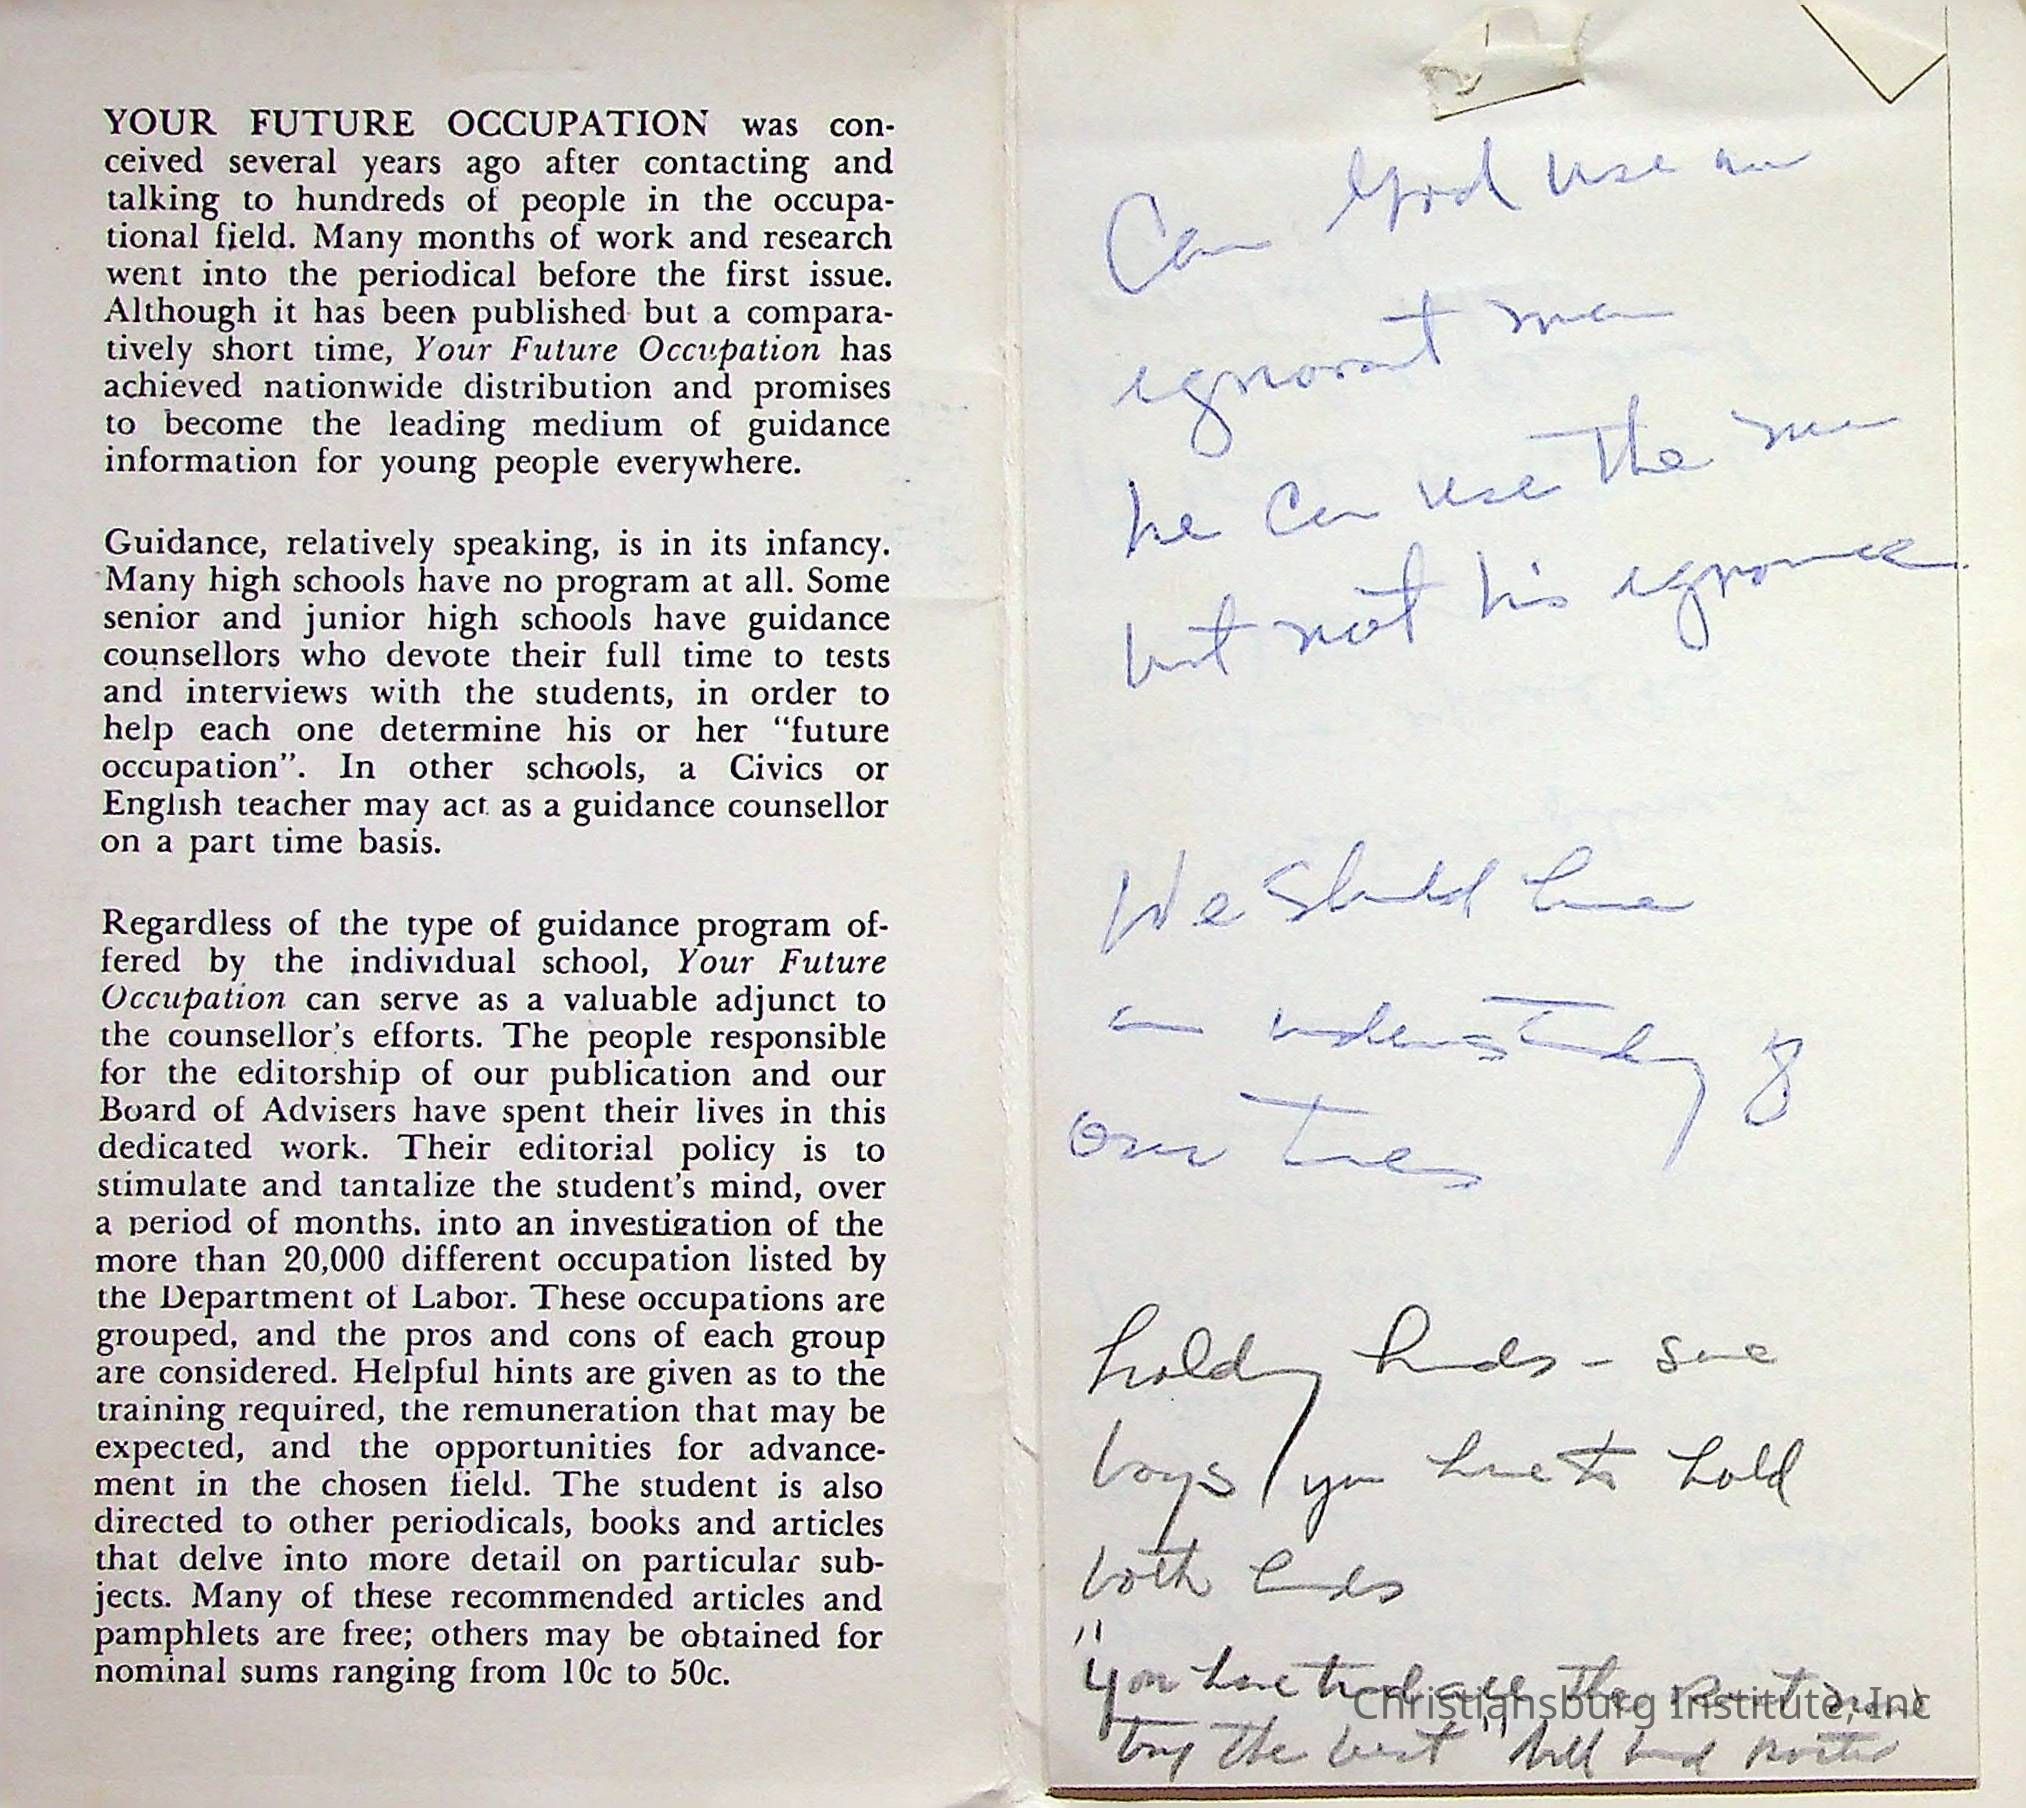 YOUR FUTURE OCCUPATION was con-
ceived several years ago after contacting and
talking to hundreds of people in the occupa-
tional field. Many months of work and research
went into the periodical before the first issue.
Although it has been published but a compara-
tively short time, Your Future Occupation has
achieved nationwide distribution and promises
to become the leading medium of guidance
information for young people everywhere.
Guidance, relatively speaking, is in its infancy.
Many high schools have no program at all. Some
senior and junior high schools have guidance
counsellors who devote their full time to tests
and interviews with the students, in order to
help each one determine his or her “future
occupation”. In other schools, a Civics or
English teacher may act as a guidance counsellor
on a part time basis.
Regardless of the type of guidance program of-
fered by the individual school, Your Future
Occupation can serve as a valuable adjunct to
the counsellor's efforts. The people responsible
for the editorship of our publication and our
Board of Advisers have spent their lives in this
dedicated work. Their editorial policy is to
stimulate and tantalize the student's mind, over
a period of months, into an investigation of the
more than 20,000 different occupation listed by
the Department of Labor. These occupations are
grouped, and the pros and cons of each group
are considered. Helpful hints are given as to the
training required, the remuneration that may be
expected, and the opportunities for advance-
ment in the chosen field. The student is also
directed to other periodicals, books and articles
that delve into more detail on particular sub-
jects. Many of these recommended articles and
pamphlets are free; others may be obtained for
nominal sums ranging from 10c to 50c.
Can God use an
ignorant man
he can use the man
but not his ignorance.
We should have
an understanding of
our times
holding hands - some
boys you have to hold
both hands
"you have tried all the rest now
try the best" bill board
Christiansburg Institute, Inc